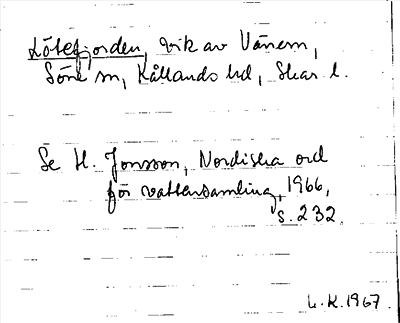 Lötefjorden, vik av Vänern,
Söne sn, Kållands hd, Skar. l.
Se H. Jonsson, Nordiska ord
för vattensamling, 1966,
s. 232.
L.K. 1967.